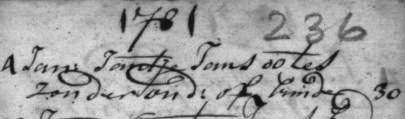 1781 236
Jan: Jantje Jans ootes
zonder ond: of kinde 30